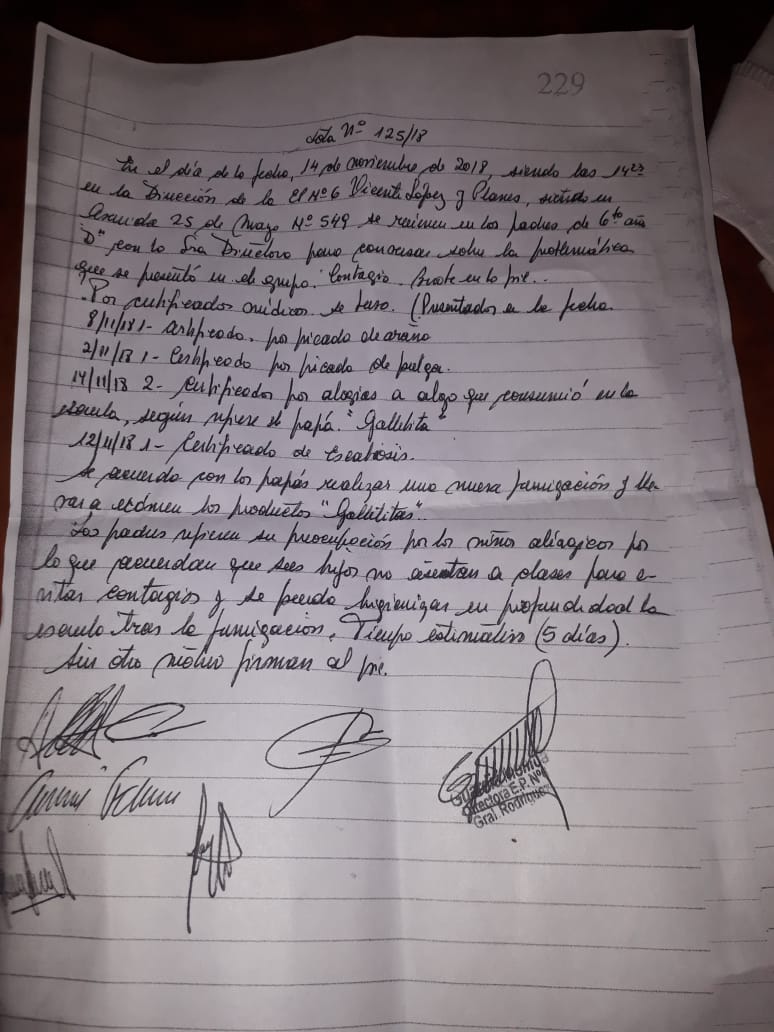 229
Acta Nº 125/18
En el día de la fecha, 14 de noviembre de 2018, siendo las 14
en la Dirección de la EP Nº 6 Vicente López y Planes, sito en
Avenida 25 de Mayo Nº 549 se reúnen en los padres de 6to año
"D" con la Sra Directora para conversar sobre la problemática
que se presentó en el grupo. Contagio. Brote en la piel..
- Por certificados médicos se tuvo. (Presentados en la fecha
8/11/18 1- Certificado, por picado de araña
2/11/18 1- Certificado por picado de pulga.
14/11/18 2- Certificados por alergias a algo que consumió en la
escuela, según refiere el papá. "Gallitita"
12/11/18 1- Certificado de Escabiosis.
Se acuerda con los papás realizar una nueva fumigación y lle
var a exámen los productos "Gallititas"..
Los padres refieren su preocupación por los niños alérgicos por
lo que acuerdan que sus hijos no asistan a clases para e-
vitar contagios y se pueda higienizar en profundidad la
escuela tras la fumigación. Tiempo estimativo (5 días).
Sin otro motivo firman al pie.
Directora E.P. Nº
Gral. Rodríguez